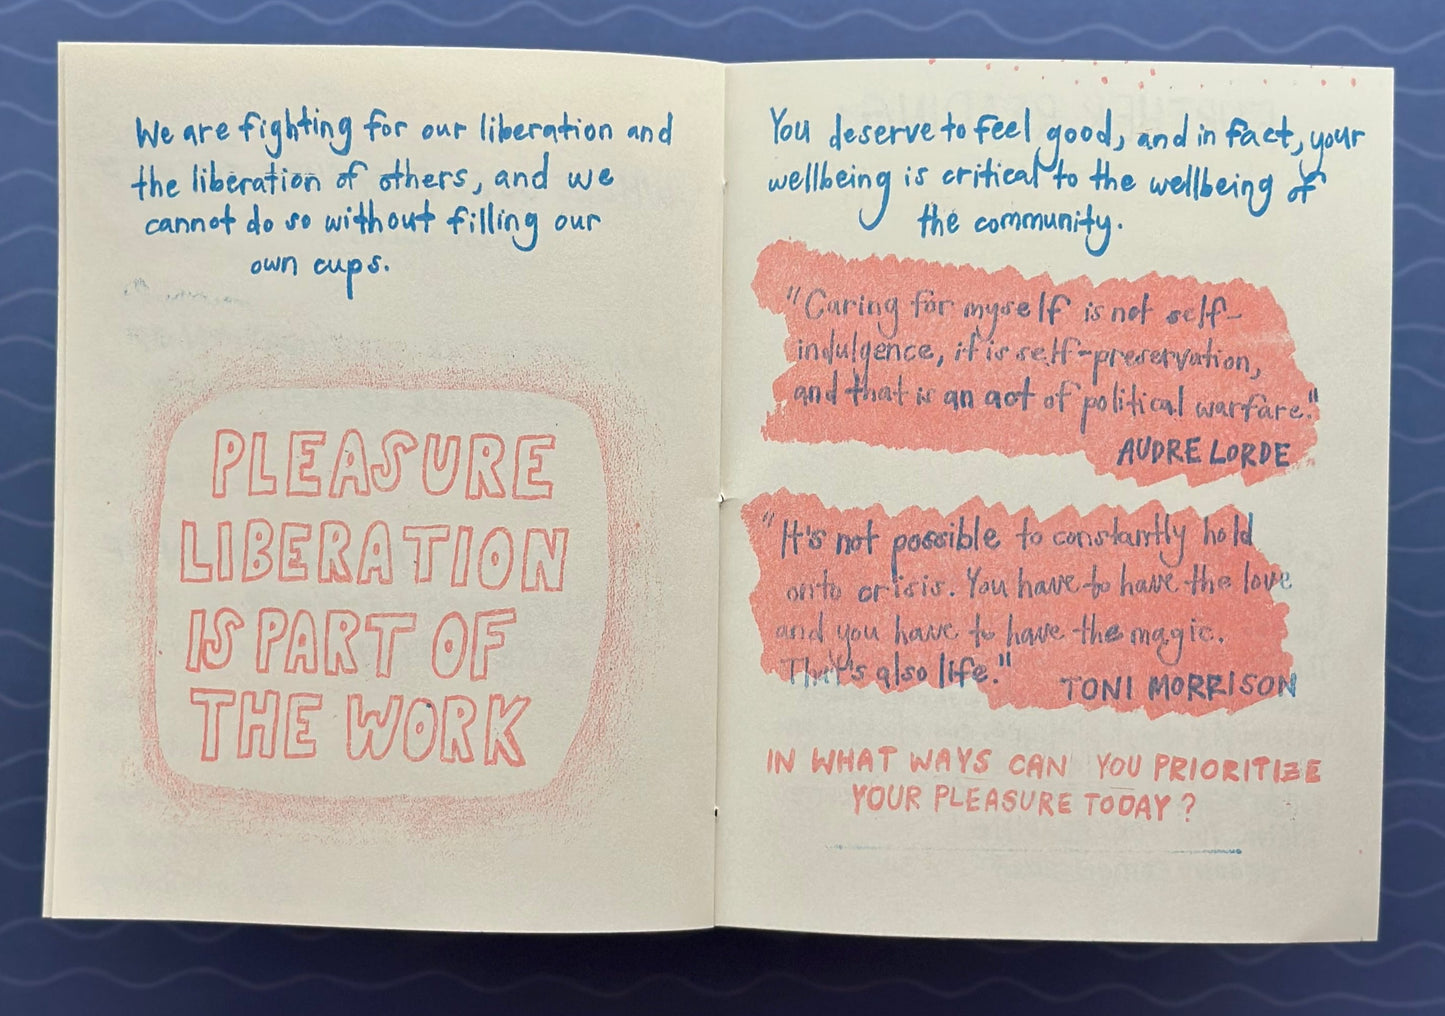 We are fighting for our liberation and
the liberation of others, and we
cannot do so without filling our
own cups.
PLEASURE
LIBERATION
IS PART OF
THE WORK
You deserve to feel good, and in fact, your
wellbeing is critical to the wellbeing of
the community.
"Caring for myself is not self-
indulgence, it is self-preservation,
and that is an act of political warfare."
AUDRE LORDE
"It's not possible to constantly hold
onto crisis. You have to have the love
and you have to have the magic.
That's also life."
TONI MORRISON
IN WHAT WAYS CAN YOU PRIORITIZE
YOUR PLEASURE TODAY?